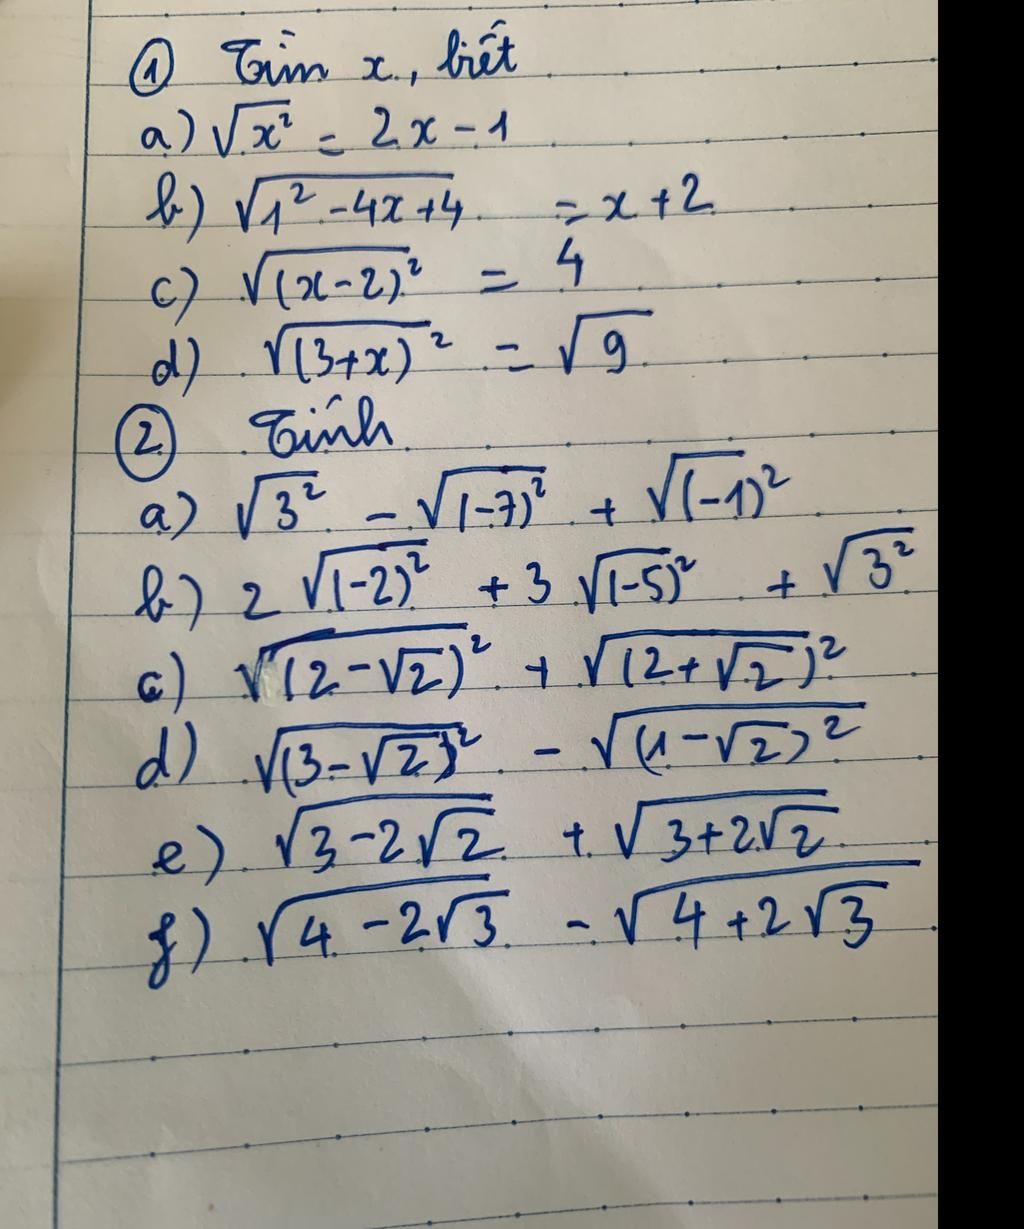 ① Tìm x, biết
a) √x² = 2x - 1
b) √1² - 4x + 4 = x + 2
c) √(x - 2)² = 4
d) √(3 + x)² = √9
② Tính
a) √3² - √(-7)² + √(-1)²
b) 2 √(-2)² + 3 √(-5)² + √3²
c) √(2 - √2)² + √(2 + √2)²
d) √(3 - √2)² - √(1 - √2)²
e) √3 - 2√2 + √3 + 2√2
f) √4 - 2√3 - √4 + 2√3